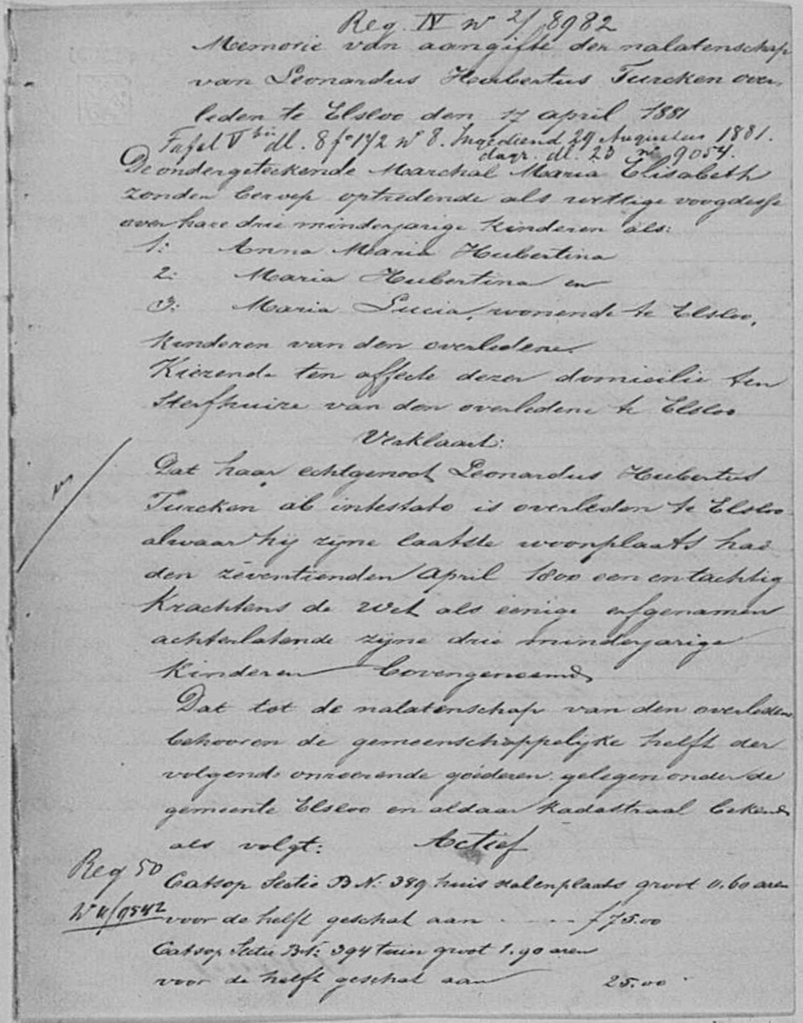 Reg. IV No 2/8982
Memorie van aangifte der nalatenschap
van Leonardus Hubertus Turcken over-
leden te Elsloo den 17 april 1881
Tafel V bis dl. 8 fo 142 No 8. Ingediend 29 Augustus 1881.
dagr. dl. 23 no 9054.
De ondergeteekende Marchal Maria Elisabeth
zonder beroep optredende als wettige voogdesse
over hare drie minderjarige kinderen als:
1: Anna Maria Hubertina
2: Maria Hubertina en
3: Maria Lucia, wonende te Elsloo,
kinderen van den overledene.
Kiezende ten effecte dezer domicilie ten
sterfhuize van den overledene te Elsloo
Verklaart:
Dat haar echtgenoot Leonardus Hubertus
Turcken ab intestato is overleden te Elsloo
alwaar hij zijne laatste woonplaats had
den zeventienden April 1800 een en tachtig
Krachtens de Wet als eenige erfgenamen
achterlatende zijne drie minderjarige
kinderen bovengenoemd
Dat tot de nalatenschap van den overledene
behooren de gemeenschappelijke helft der
volgende onroerende goederen gelegen onder de
gemeente Elsloo en aldaar kadastraal bekend
als volgt: Actief
Reg 50
Catsop Sectie B No: 389 huis stalenplaats groot 0.60 aren
voor de helft geschat aan ----- f 75.00
Catsop Sectie B No: 394 tuin groot 1.90 aren
voor de helft geschat aan 25.00